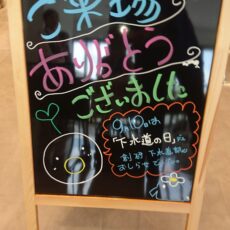 ご来場
ありがとう
ございました
9月10日は
「下水道の日」
下水道
おしらせ